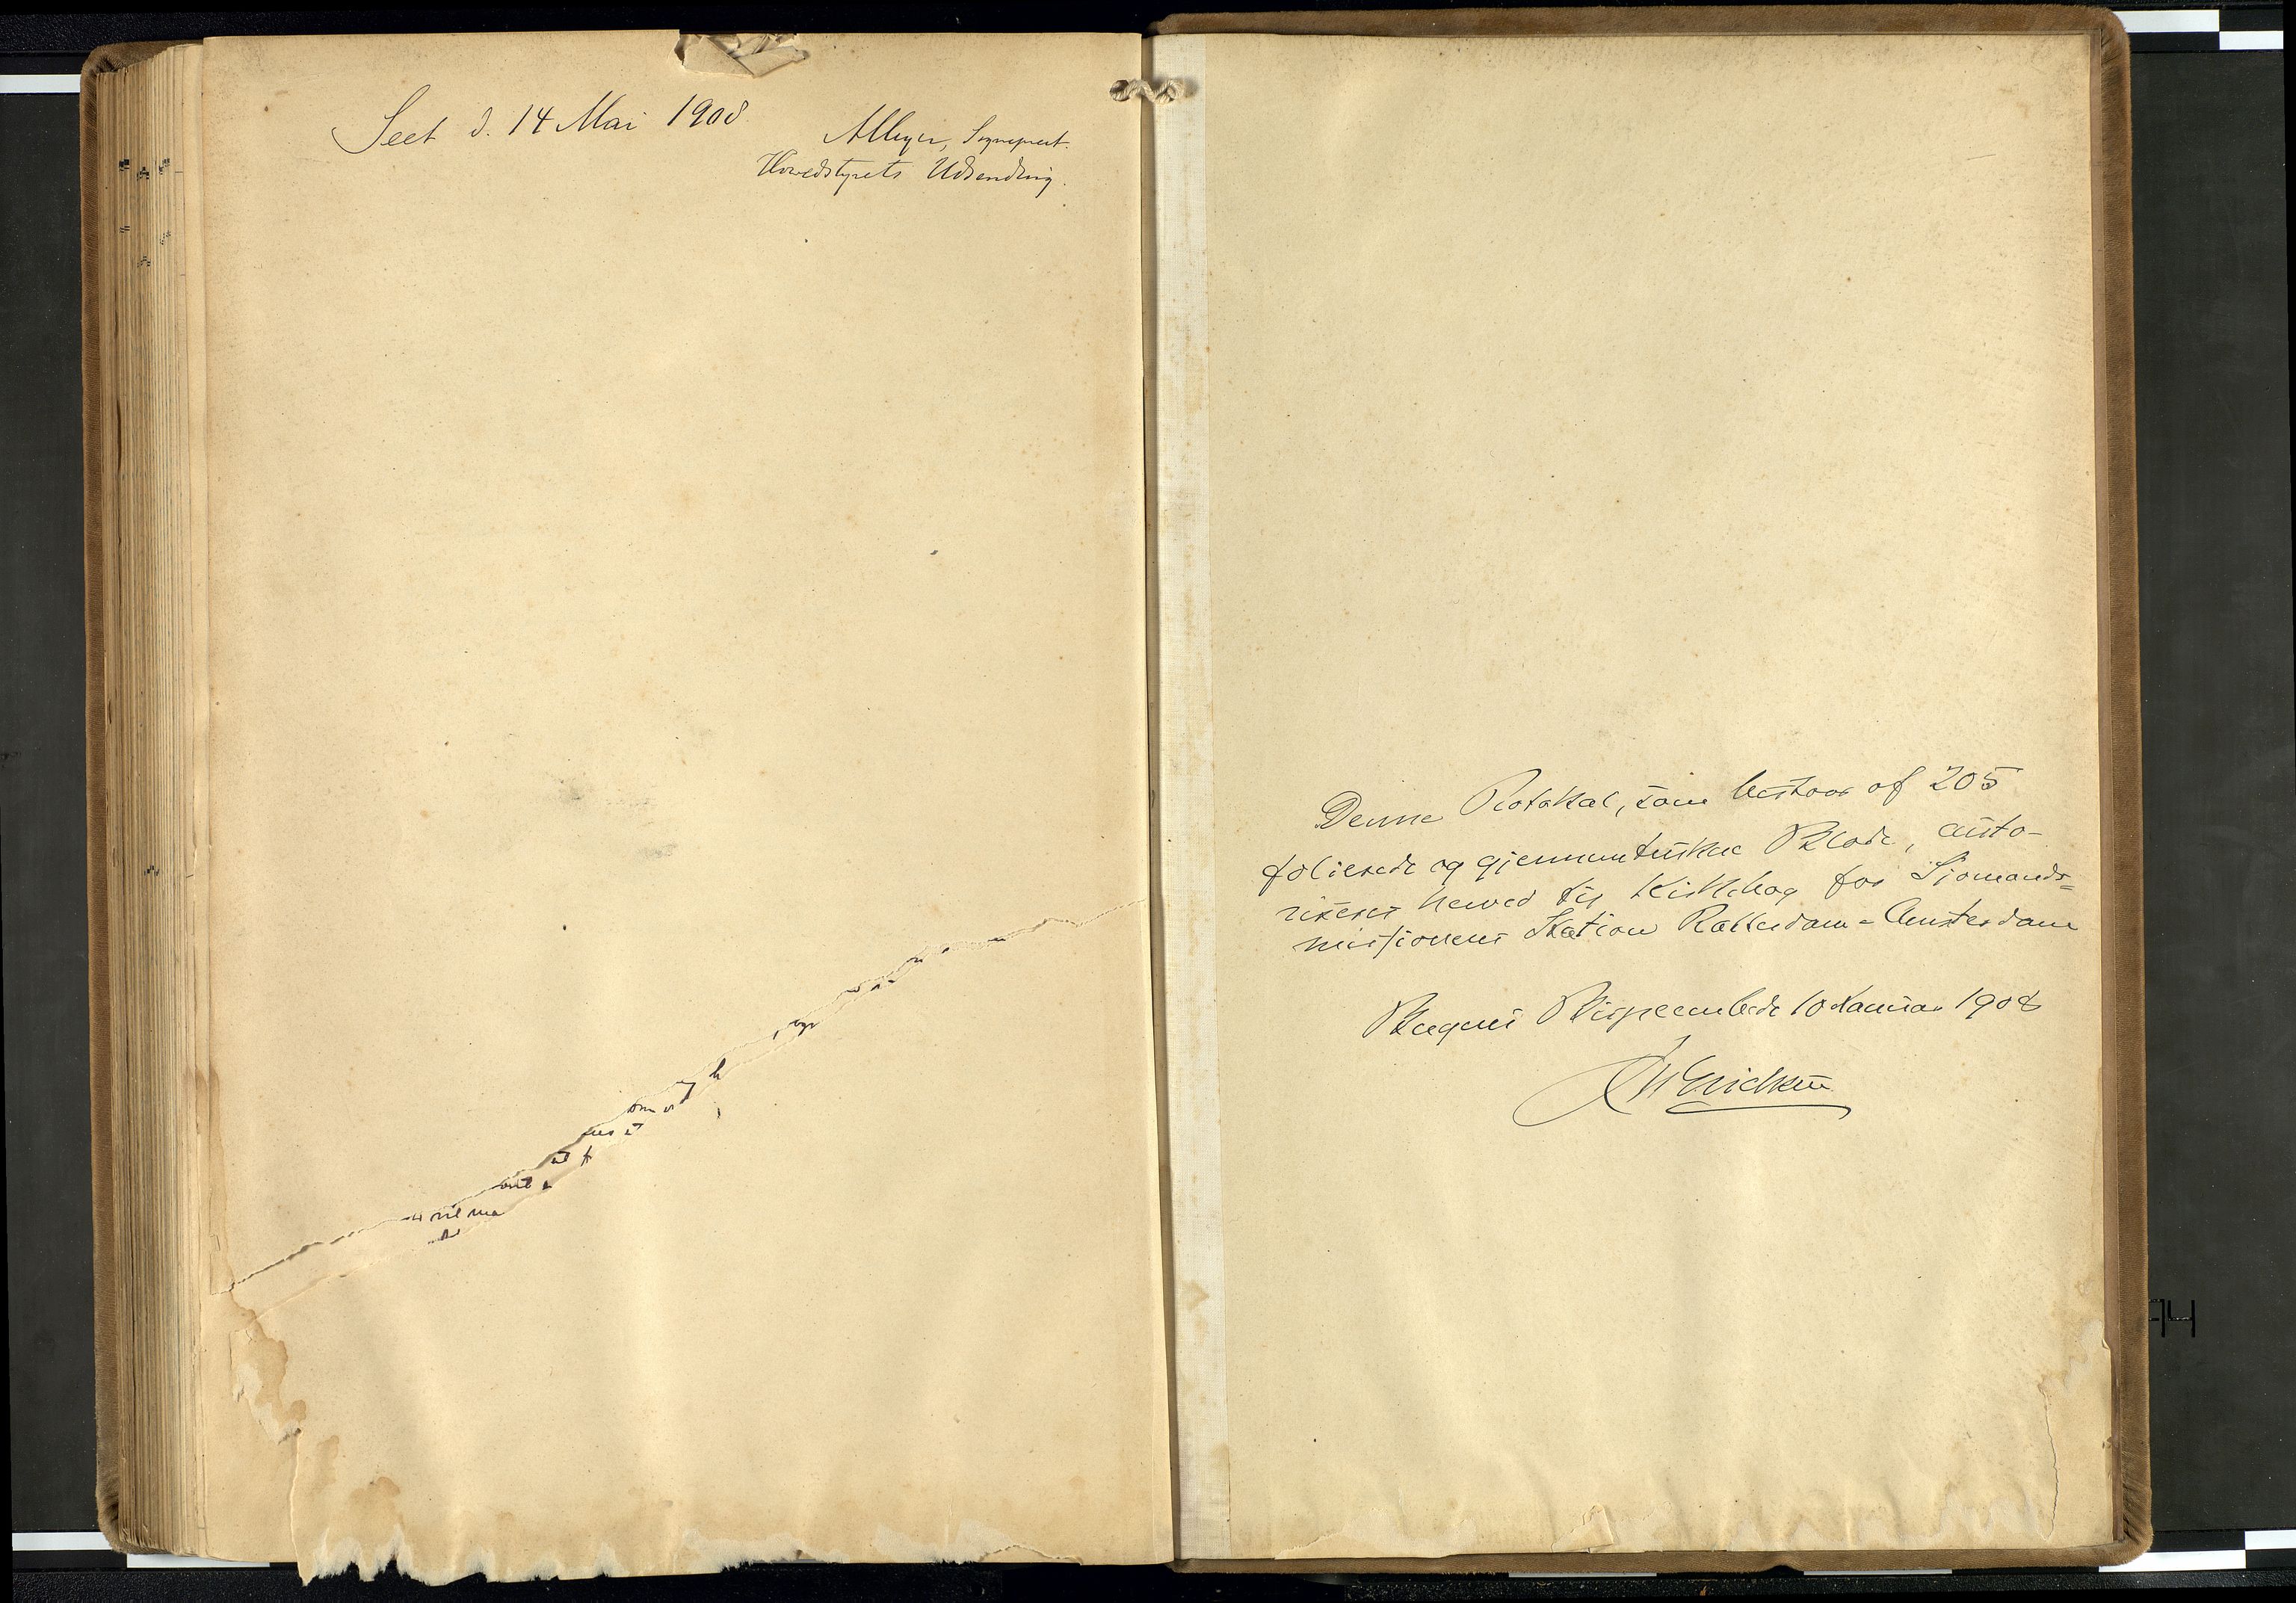 Seet d. 14 Mai 1908.
Sognepræst.
Hovedstyrets Udsending.
Denne Protokol, som bestaar af 205
folierede og gjennemtrukne Blade, auto-
riseres herved til Kirkebog for Sjømands-
missionens Station Rotterdam-Amsterdam
Bergens Bispeembede 10 Januar 1908
J W Erichsen